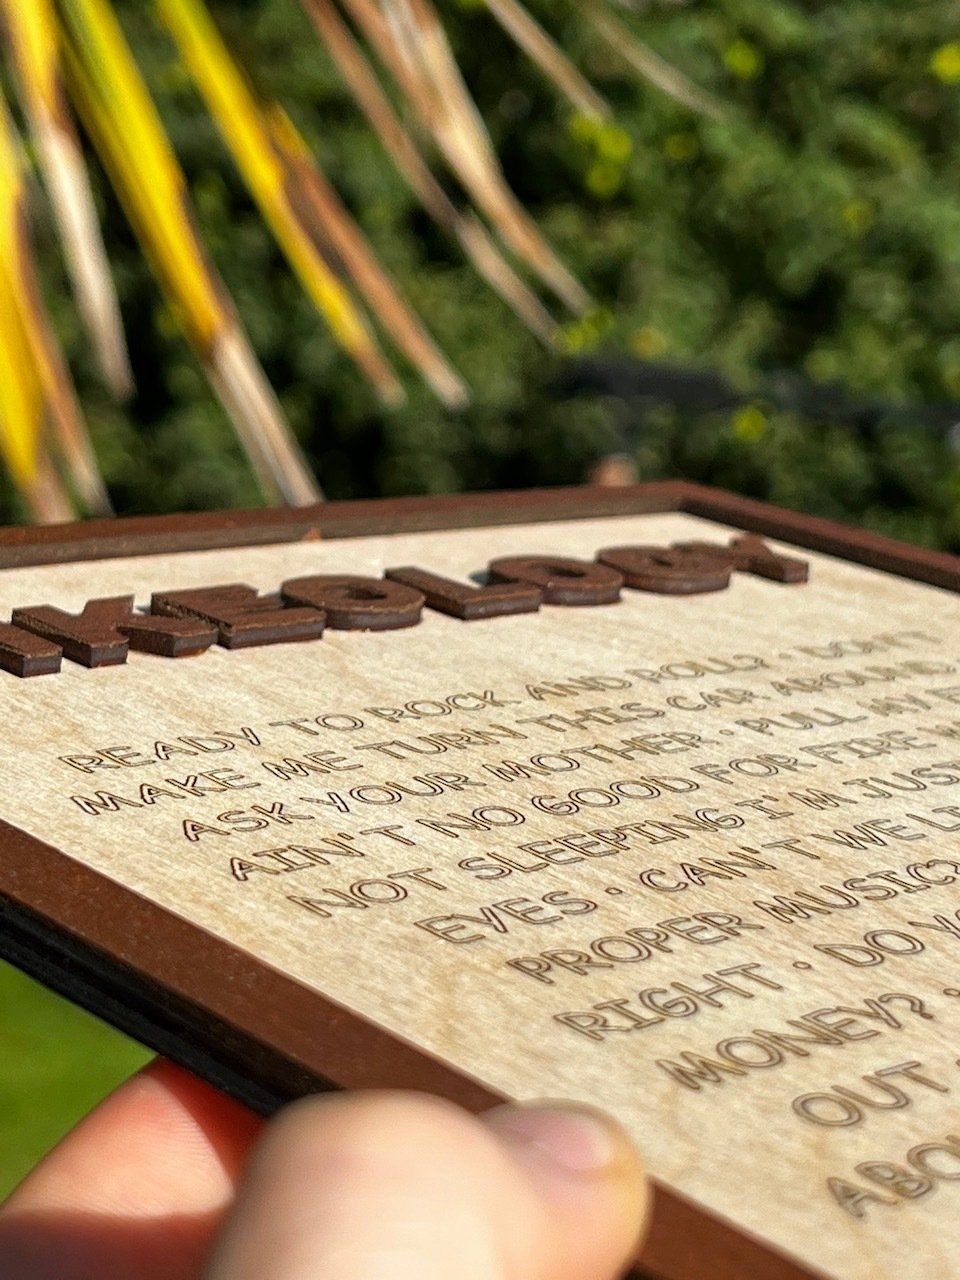 IKEOLOGY
READY TO ROCK AND ROLL? · DON'T
MAKE ME TURN THIS CAR AROUND
ASK YOUR MOTHER. · PULL MY
AIN'T NO GOOD FOR FIRE
NOT SLEEPING I'M JUST
EYES · CAN'T WE
PROPER MUSIC?
RIGHT · DO
MONEY? ·
OUT